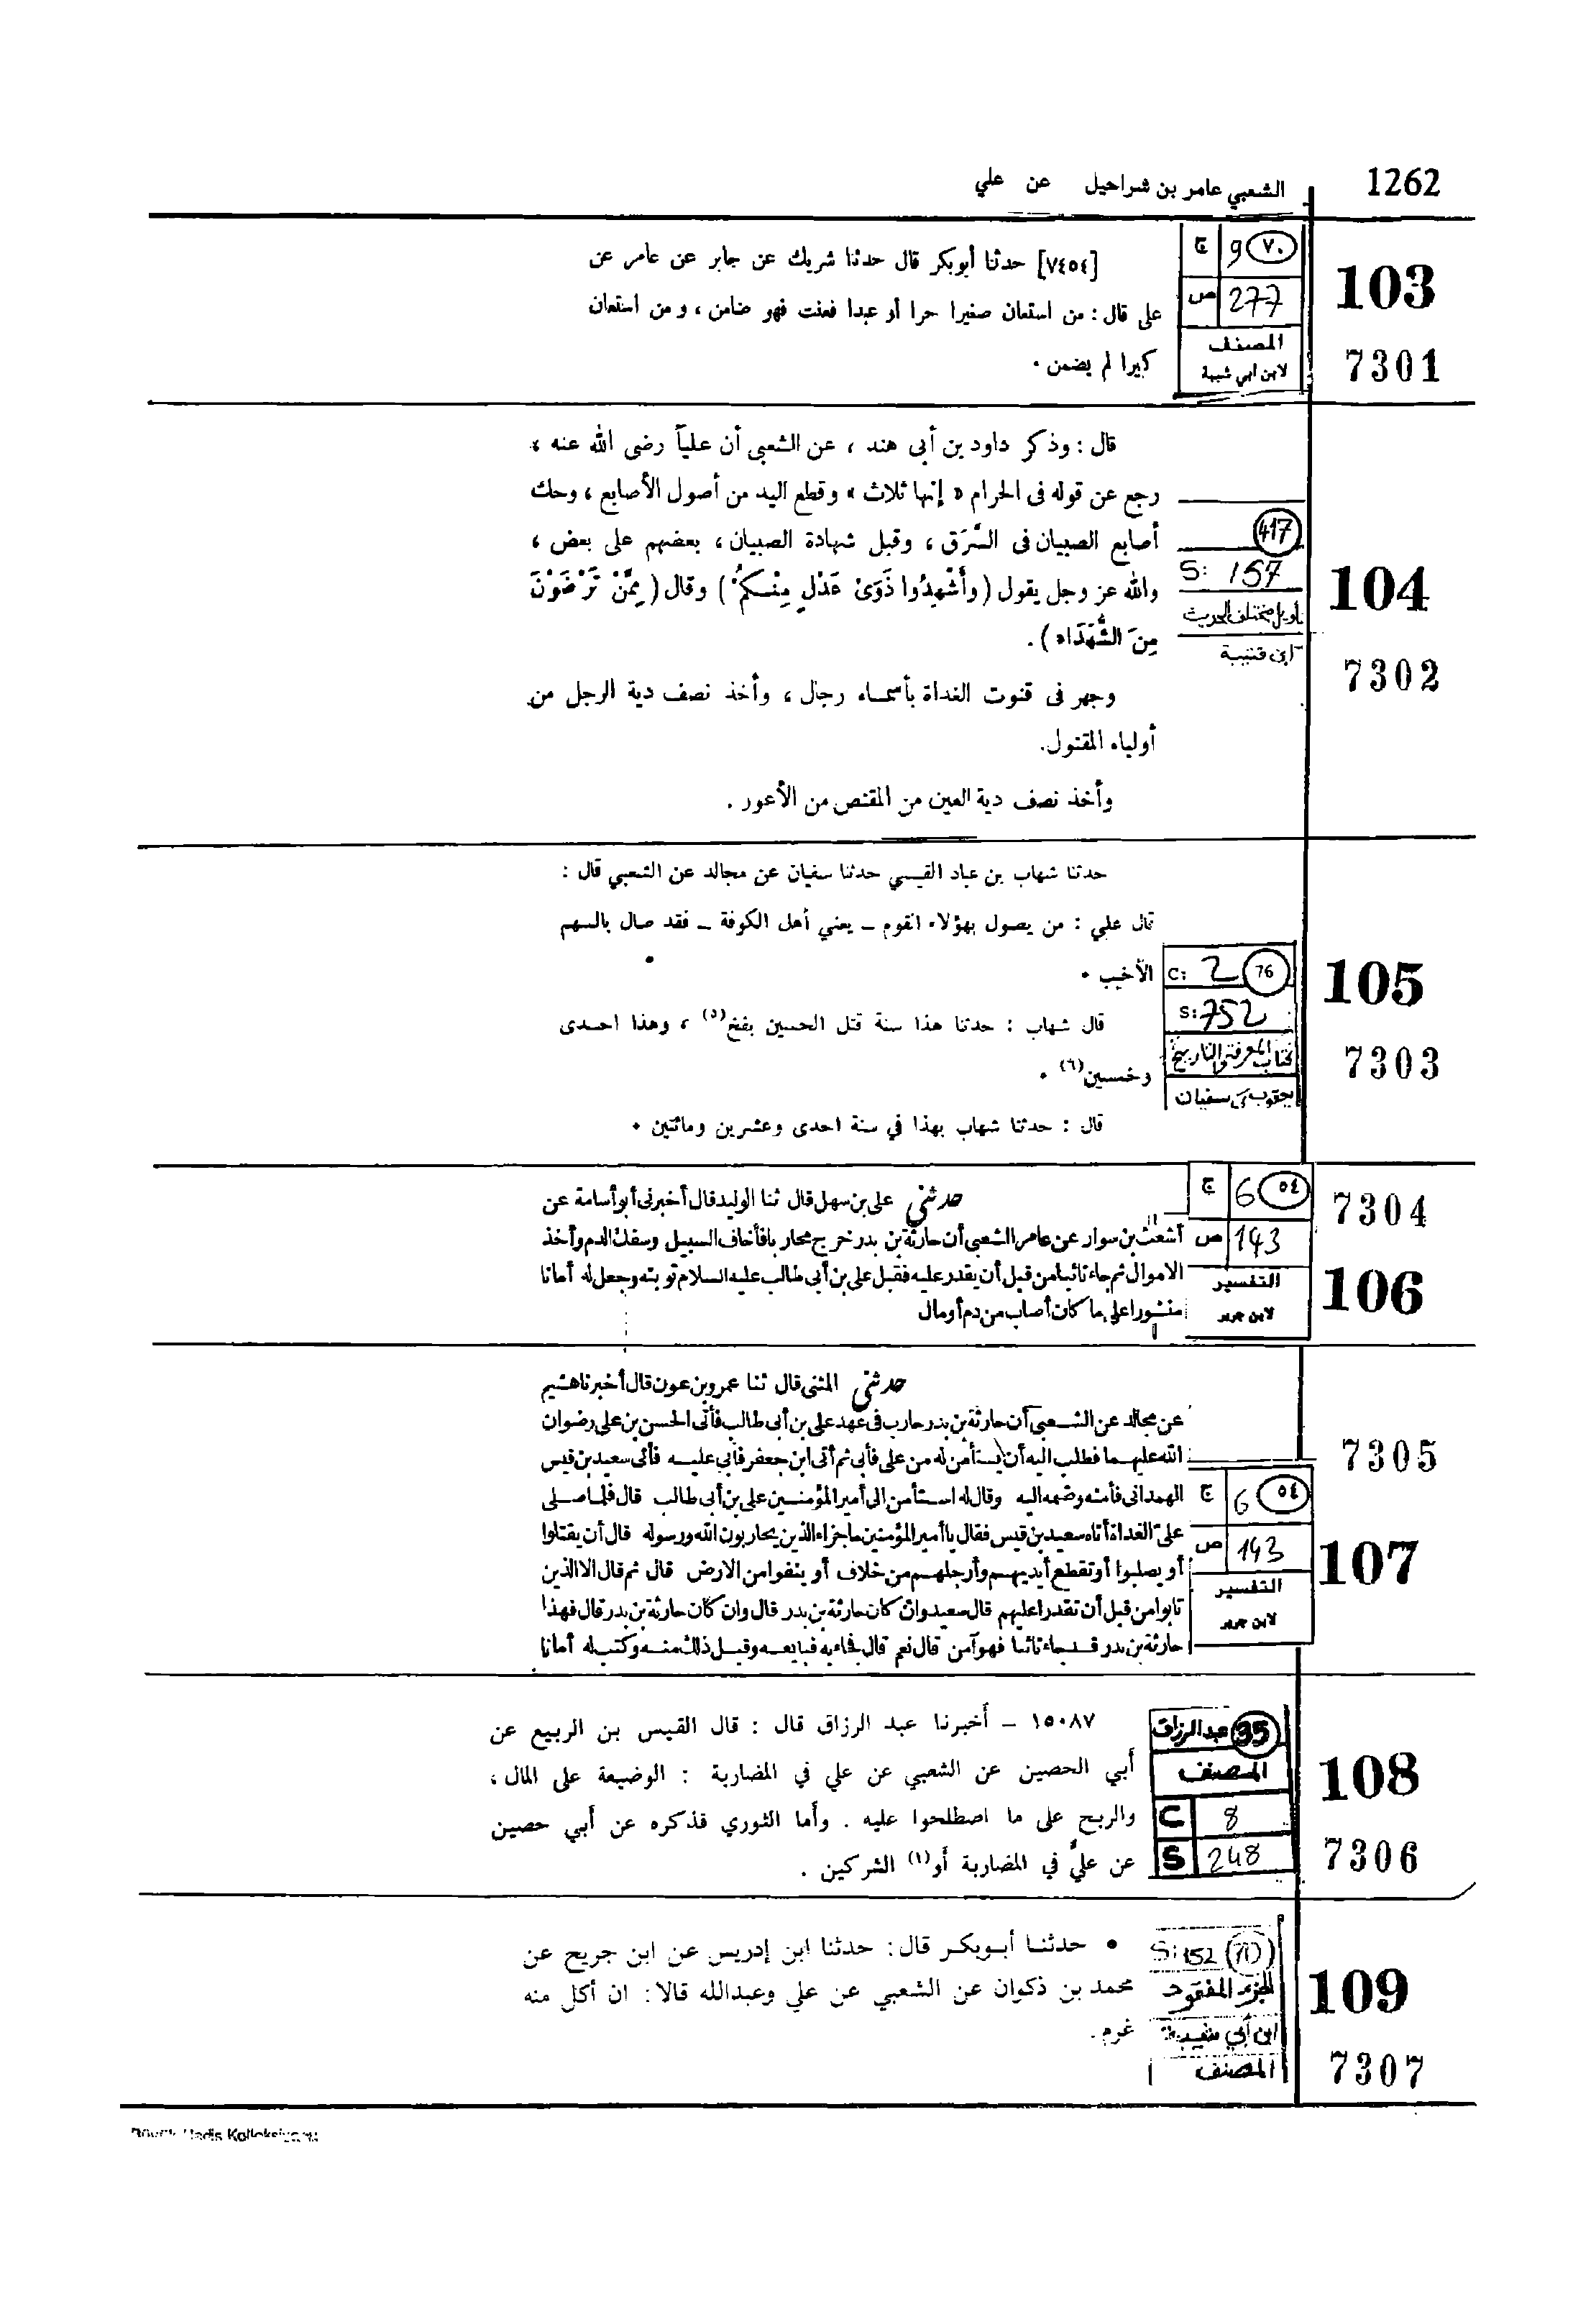 1262
الشعبي عامر بن شراحيل عن علي
103
7301
ج 9 ٧٠
ص 277
المصنف
لابن ابي شيبة
[٧٤٥٤] حدثنا أبوبكر قال حدثنا شريك عن جابر عن عامر عن
على قال : من استعان صغيرا حرا أو عبدا فعنت فهو ضامن ، ومن استعان
كبيرا لم يضمن .
104
7302
417
S: 157
تأويل مختلف الحديث
ابن قتيبة
قال : وذكر داود بن أبى هند ، عن الشعبى أن علياً رضى الله عنه ،
رجع عن قوله فى الحرام « إنها ثلاث » وقطع اليد من أصول الأصابع ، وحك
أصابع الصبيان فى السَّرَق ، وقبل شهادة الصبيان ، بعضهم على بعض ،
والله عز وجل يقول ( وأَشْهِدُوا ذَوَىْ عَدْلٍ مِنْكُمْ ) وقال ( مِمَّنْ تَرْضَوْنَ
مِنَ الشُّهَدَاء ) .
وجهر فى قنوت الغداة بأسماء رجال ، وأخذ نصف دية الرجل من
أولياء المقتول.
وأخذ نصف دية العين من المقتص من الأعور .
105
7303
C: 2 76
S: 752
كتاب المعرفة والتاريخ
يعقوب بن سفيان
حدثنا شهاب بن عباد القيسي حدثنا سفيان عن مجالد عن الشعبي قال :
قال علي : من يصول بهؤلاء القوم – يعني أهل الكوفة – فقد صال بالسهم
الأخيب .
قال شهاب : حدثنا هذا سنة قتل الحسين بفخ(٥) ، وهذا احدى
وخمسين(٦) .
قال : حدثنا شهاب بهذا في سنة احدى وعشرين ومائتين .
7304
106
ج 6 ٥٤
ص 143
التفسير
لابن جرير
حدثني على بن سهل قال ثنا الوليد قال أخبرنى أبو أسامة عن
أشعث بن سوار عن عامر الشعبى أن حارثة بن بدر خرج محاربا فأخاف السبيل وسفك الدم وأخذ
الاموال ثم جاء تائبا من قبل أن يقدر عليه فقبل على بن أبى طالب عليه السلام توبته وجعل له أمانا
منشورا على ما كان أصاب من دم أو مال
7305
107
ج 6 ٥٤
ص 143
التفسير
لابن جرير
حدثني المثنى قال ثنا عمرو بن عون قال أخبرنا هشيم
عن مجالد عن الشعبى أن حارثة بن بدر حارب فى عهد على بن أبى طالب فأتى الحسن بن على رضوان
الله عليهما فطلب اليه أن يستأمن له من على فأبى ثم أتى ابن جعفر فأبى عليه فأتى سعيد بن قيس
الهمدانى فأمنه وضمه اليه وقال له استأمن الى أمير المؤمنين على بن أبى طالب قال فلما صلى
على الغداة أتاه سعيد بن قيس فقال يا أمير المؤمنين ما جزاء الذين يحاربون الله ورسوله قال أن يقتلوا
أو يصلبوا أو تقطع أيديهم وأرجلهم من خلاف أو ينفوا من الارض قال ثم قال الا الذين
تابوا من قبل أن تقدروا عليهم قال سعيد وان كان حارثة بن بدر قال وان كان حارثة بن بدر قال فهذا
حارثة بن بدر قد جاء تائبا فهو آمن قال نعم قال فجاء به فبايعه وقبل ذلك منه وكتب له أمانا
108
7306
عبد الرزاق 35
المصنف
C 8
S 248
١٥٠٨٧ – أخبرنا عبد الرزاق قال : قال القيس بن الربيع عن
أبي الحصين عن الشعبي عن علي في المضاربة : الوضيعة على المال ،
والربح على ما اصطلحوا عليه . وأما الثوري فذكره عن أبي حصين
عن عليّ في المضاربة أو(١) الشركين .
109
7307
S: 152
الجزء المفقود
ابن أبي شيبة
المصنف
• حدثنا أبوبكر قال: حدثنا ابن إدريس عن ابن جريح عن
محمد بن ذكوان عن الشعبي عن علي وعبدالله قالا: ان أكل منه
غرم.
Hadis Kolleksiyonu